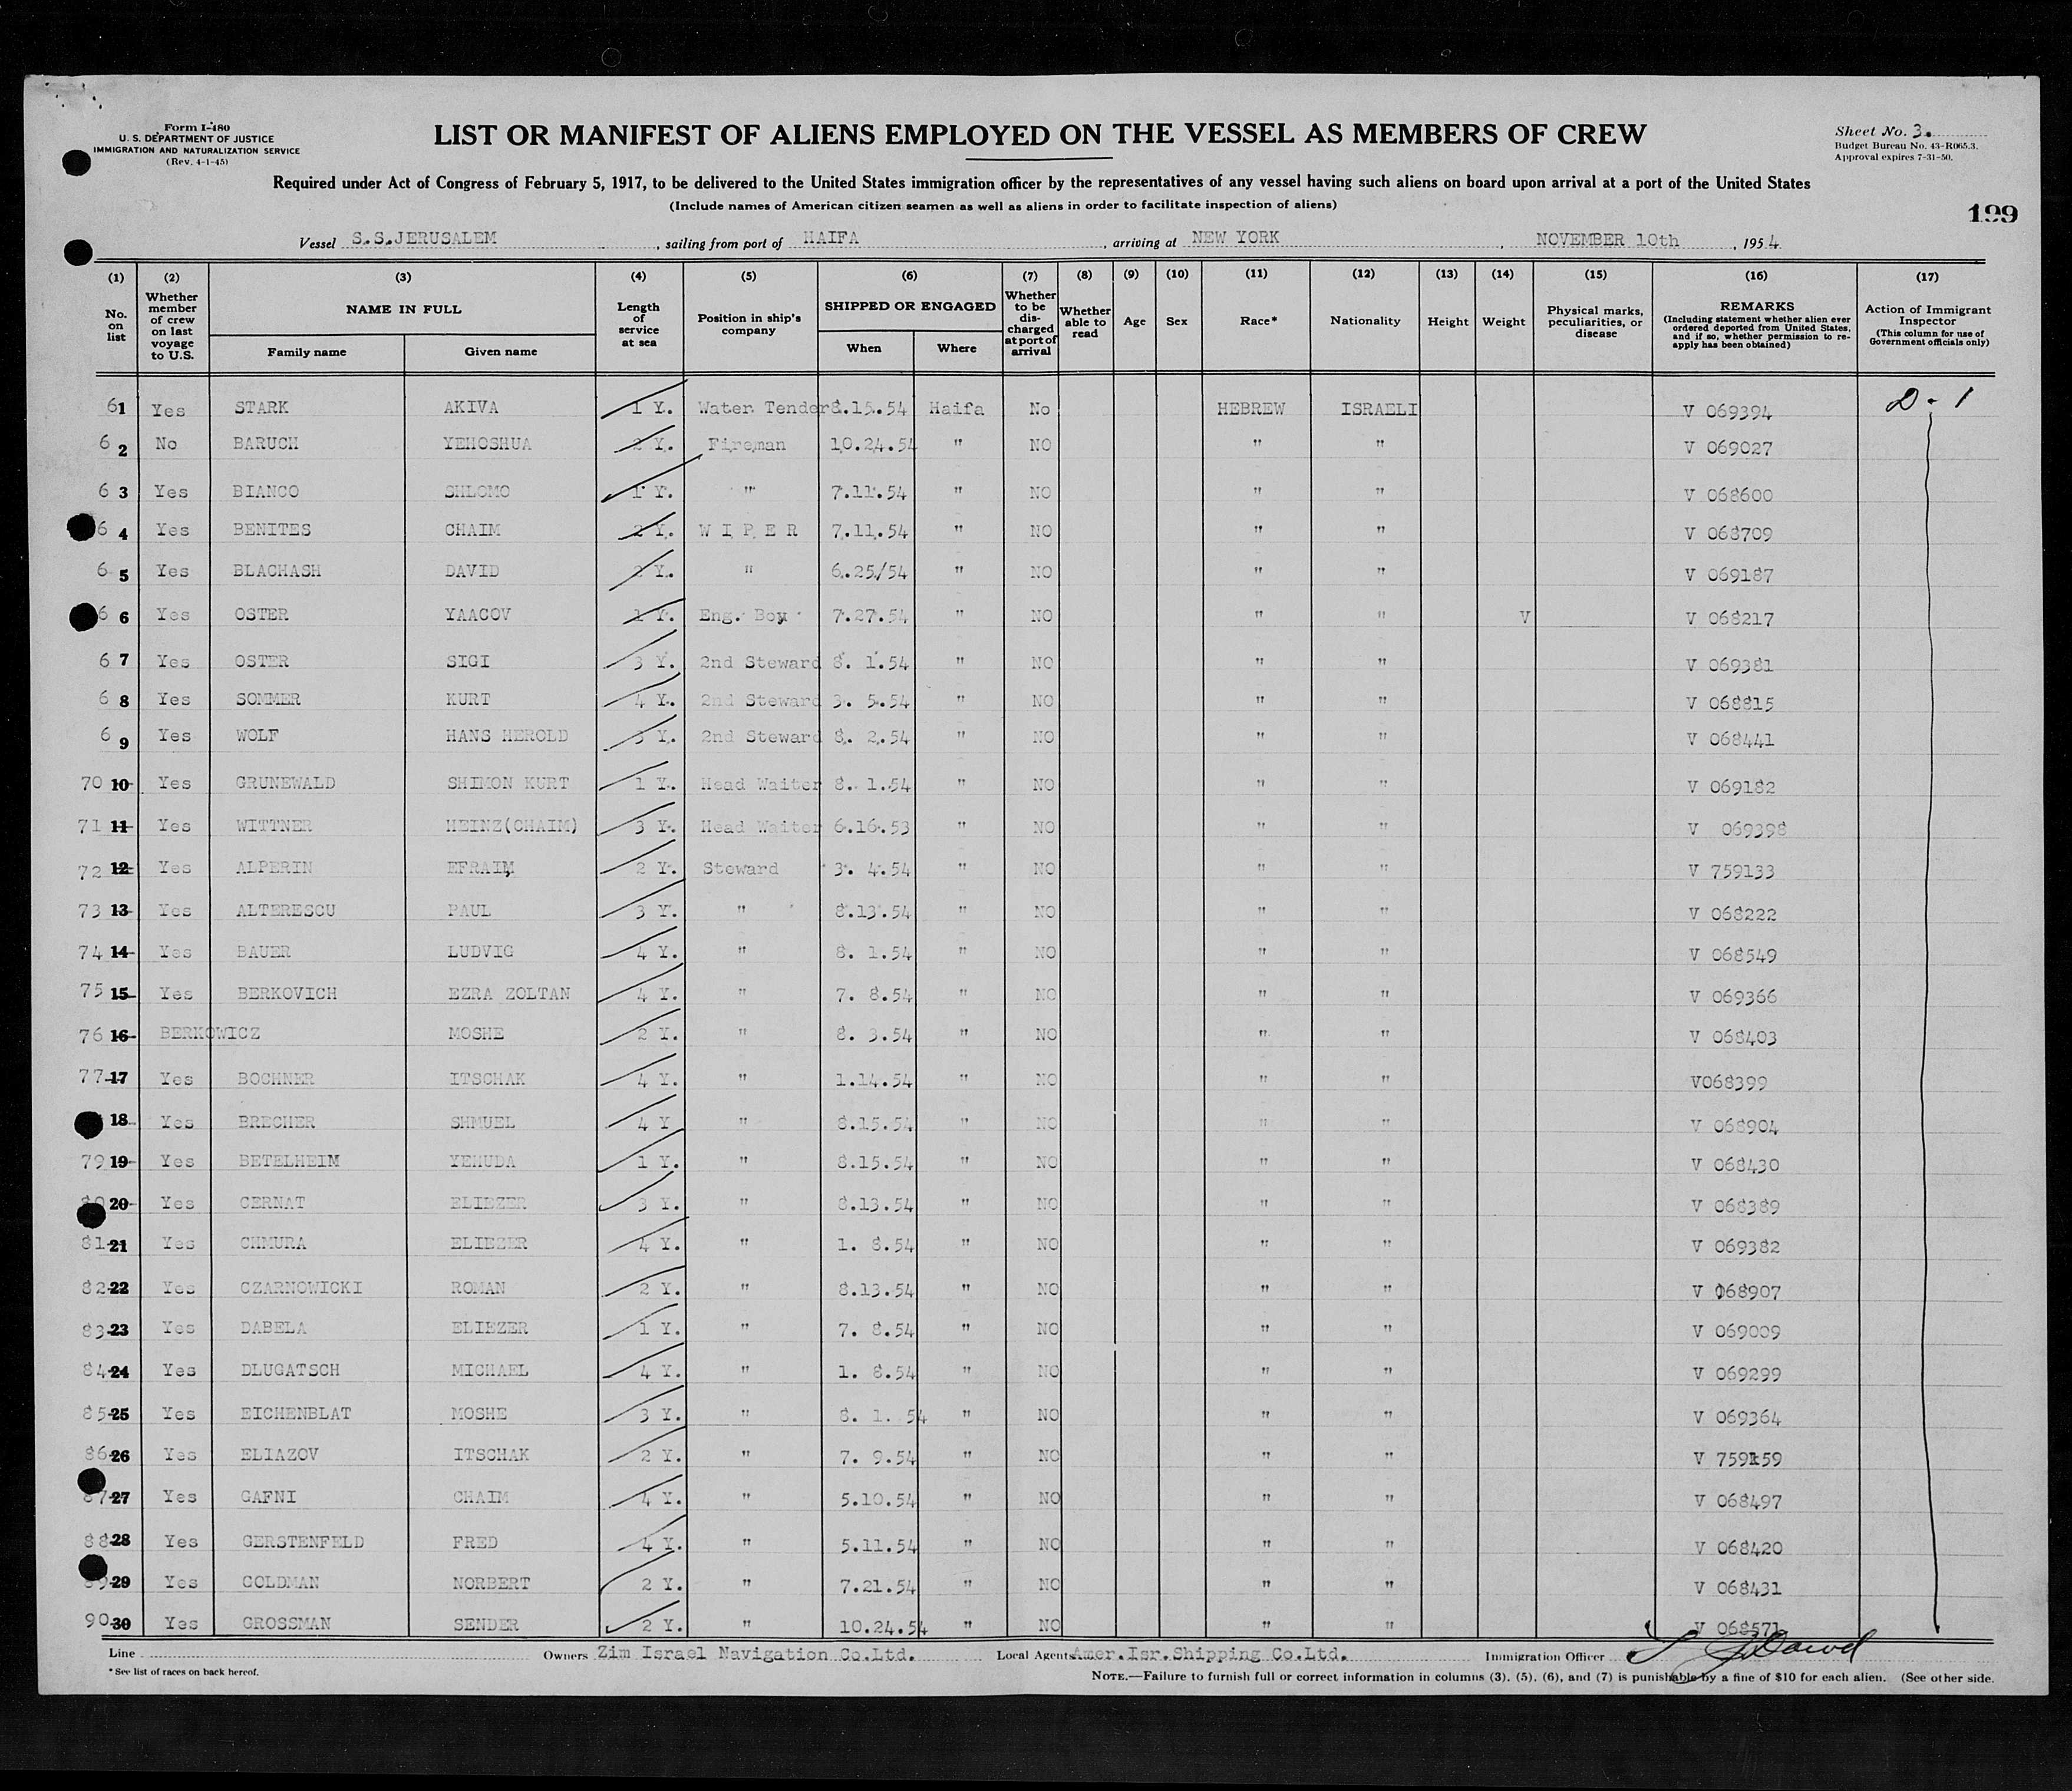 Form I-480
U. S. DEPARTMENT OF JUSTICE
IMMIGRATION AND NATURALIZATION SERVICE
(Rev. 4-1-45)
LIST OR MANIFEST OF ALIENS EMPLOYED ON THE VESSEL AS MEMBERS OF CREW
Sheet No. 3.
Budget Bureau No. 43-R065.3.
Approval expires 7-31-50.
Required under Act of Congress of February 5, 1917, to be delivered to the United States immigration officer by the representatives of any vessel having such aliens on board upon arrival at a port of the United States
(Include names of American citizen seamen as well as aliens in order to facilitate inspection of aliens)
199
Vessel S.S.JERUSALEM , sailing from port of HAIFA , arriving at NEW YORK , NOVEMBER 10th , 1954
(1) (2) (3) (4) (5) (6) (7) (8) (9) (10) (11) (12) (13) (14) (15) (16) (17)
No. on list
Whether member of crew on last voyage to U.S.
NAME IN FULL
Family name Given name
Length of service at sea
Position in ship's company
SHIPPED OR ENGAGED
When Where
Whether to be discharged at port of arrival
Whether able to read
Age Sex Race* Nationality Height Weight
Physical marks, peculiarities, or disease
REMARKS
(Including statement whether alien ever ordered deported from United States, and if so, whether permission to re-apply has been obtained)
Action of Immigrant Inspector
(This column for use of Government officials only)
61 Yes STARK AKIVA 1 Y. Water Tender 8.15.54 Haifa No HEBREW ISRAELI V 069394 D-1
6 2 No BARUCH YEHOSHUA 2 Y. Fireman 10.24.54 " NO " " V 069027
6 3 Yes BIANCO SHLOMO 1 Y. " 7.11.54 " NO " " V 068600
6 4 Yes BENITES CHAIM 2 Y. W I P E R 7.11.54 " NO " " V 068709
6 5 Yes BLACHASH DAVID 2 Y. " 6.25/54 " NO " " V 069187
6 6 Yes OSTER YAACOV 1 Y. Eng. Boy 7.27.54 " NO " " V V 068217
6 7 Yes OSTER SIGI 3 Y. 2nd Steward 8. 1.54 " NO " " V 069381
6 8 Yes SOMMER KURT 4 Y. 2nd Steward 3. 5.54 " NO " " V 068815
6 9 Yes WOLF HANS HEROLD 3 Y. 2nd Steward 8. 2.54 " NO " " V 068441
70 10 Yes GRUNEWALD SHIMON KURT 1 Y. Head Waiter 8. 1.54 " NO " " V 069182
71 11 Yes WITTNER HEINZ(CHAIM) 3 Y. Head Waiter 6.16.53 " NO " " V 069398
72 12 Yes ALPERIN EFRAIM 2 Y. Steward 3. 4.54 " NO " " V 759133
73 13 Yes ALTERESCU PAUL 3 Y. " 8.13.54 " NO " " V 068222
74 14 Yes BAUER LUDVIG 4 Y. " 8. 1.54 " NO " " V 068549
75 15 Yes BERKOVICH EZRA ZOLTAN 4 Y. " 7. 8.54 " NO " " V 069366
76 16 BERKOWICZ MOSHE 2 Y. " 8. 3.54 " NO " " V 068403
77 17 Yes BOCHNER ITSCHAK 4 Y. " 1.14.54 " NO " " V068399
18 Yes BRECHER SHMUEL 4 Y " 8.15.54 " NO " " V 068904
79 19 Yes BETELHEIM YEHUDA 1 Y. " 8.15.54 " NO " " V 068430
80 20 Yes CERNAT ELIEZER 3 Y. " 8.13.54 " NO " " V 068389
81 21 Yes CHMURA ELIEZER 4 Y. " 1. 8.54 " NO " " V 069382
82 22 Yes CZARNOWICKI ROMAN 2 Y. " 8.13.54 " NO " " V 068907
83 23 Yes DABELA ELIEZER 1 Y. " 7. 8.54 " NO " " V 069009
84 24 Yes DLUGATSCH MICHAEL 4 Y. " 1. 8.54 " NO " " V 069299
85 25 Yes EICHENBLAT MOSHE 3 Y. " 8. 1. 54 " NO " " V 069364
86 26 Yes ELIAZOV ITSCHAK 2 Y. " 7. 9.54 " NO " " V 759159
87 27 Yes GAFNI CHAIM 4 Y. " 5.10.54 " NO " " V 068497
88 28 Yes GERSTENFELD FRED 4 Y. " 5.11.54 " NO " " V 068420
89 29 Yes GOLDMAN NORBERT 2 Y. " 7.21.54 " NO " " V 068431
90 30 Yes GROSSMAN SENDER 2 Y. " 10.24.54 " NO " " V 068571
Line Owners Zim Israel Navigation Co.Ltd. Local Agents Amer.Isr.Shipping Co.Ltd. Immigration Officer
* See list of races on back hereof.
NOTE.—Failure to furnish full or correct information in columns (3), (5), (6), and (7) is punishable by a fine of $10 for each alien. (See other side.